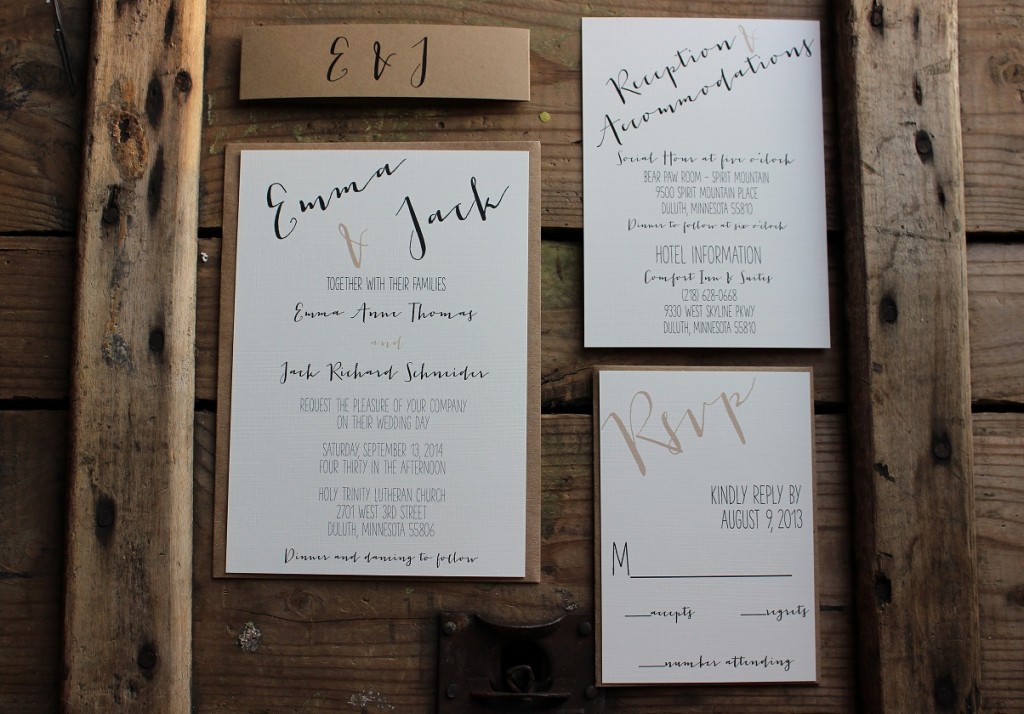 E & J
Emma
& Jack
TOGETHER WITH THEIR FAMILIES
Emma Anne Thomas
and
Jack Richard Schneider
REQUEST THE PLEASURE OF YOUR COMPANY
ON THEIR WEDDING DAY
SATURDAY, SEPTEMBER 13, 2014
FOUR THIRTY IN THE AFTERNOON
HOLY TRINITY LUTHERAN CHURCH
2701 WEST 3RD STREET
DULUTH, MINNESOTA 55806
Dinner and dancing to follow
Reception &
Accommodations
Social Hour at five o'clock
BEAR PAW ROOM - SPIRIT MOUNTAIN
9500 SPIRIT MOUNTAIN PLACE
DULUTH, MINNESOTA 55810
Dinner to follow at six o'clock
HOTEL INFORMATION
Comfort Inn & Suites
(218) 628-0668
9330 WEST SKYLINE PKWY
DULUTH, MINNESOTA 55810
Rsvp
KINDLY REPLY BY
AUGUST 9, 2013
M
accepts regrets
number attending